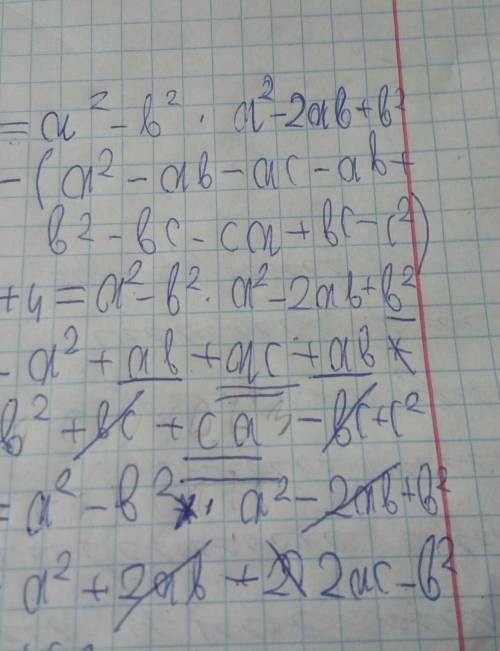 = a² - b² · a² - 2ab + b²
- (a² - ab - ac - ab +
b² - bc - ca + bc - c²)
+ 4 = a² - b² · a² - 2ab + b²
- a² + ab + ac + ab
b² + bc + ca - bc + c²
= a² - b² · a² - 2ab + b²
a² + 2ab + 2ac - b²